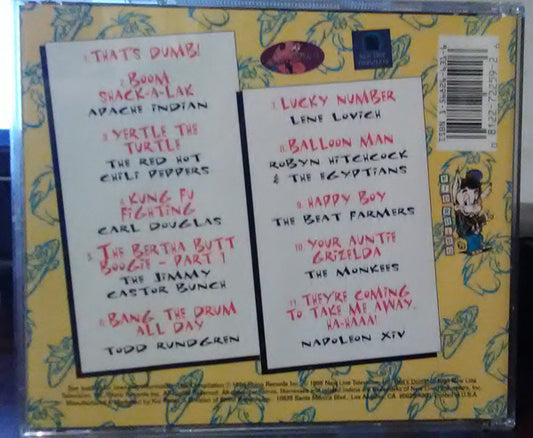 1. THAT'S DUMB!
2. BOOM
SHACK-A-LAK
APACHE INDIAN
3. YERTLE THE
TURTLE
THE RED HOT
CHILI PEPPERS
4. KUNG FU
FIGHTING
CARL DOUGLAS
5. THE BERTHA BUTT
BOOGIE - PART 1
THE JIMMY
CASTOR BUNCH
6. BANG THE DRUM
ALL DAY
TODD RUNDGREN
7. LUCKY NUMBER
LENE LOVICH
8. BALLOON MAN
ROBYN HITCHCOCK
& THE EGYPTIANS
9. HAPPY BOY
THE BEAT FARMERS
10. YOUR AUNTIE
GRIZELDA
THE MONKEES
11. THEY'RE COMING
TO TAKE ME AWAY,
HA-HAAA!
NAPOLEON XIV
8122-72259-2
Santa Monica Blvd., Los Angeles, CA
Printed in U.S.A